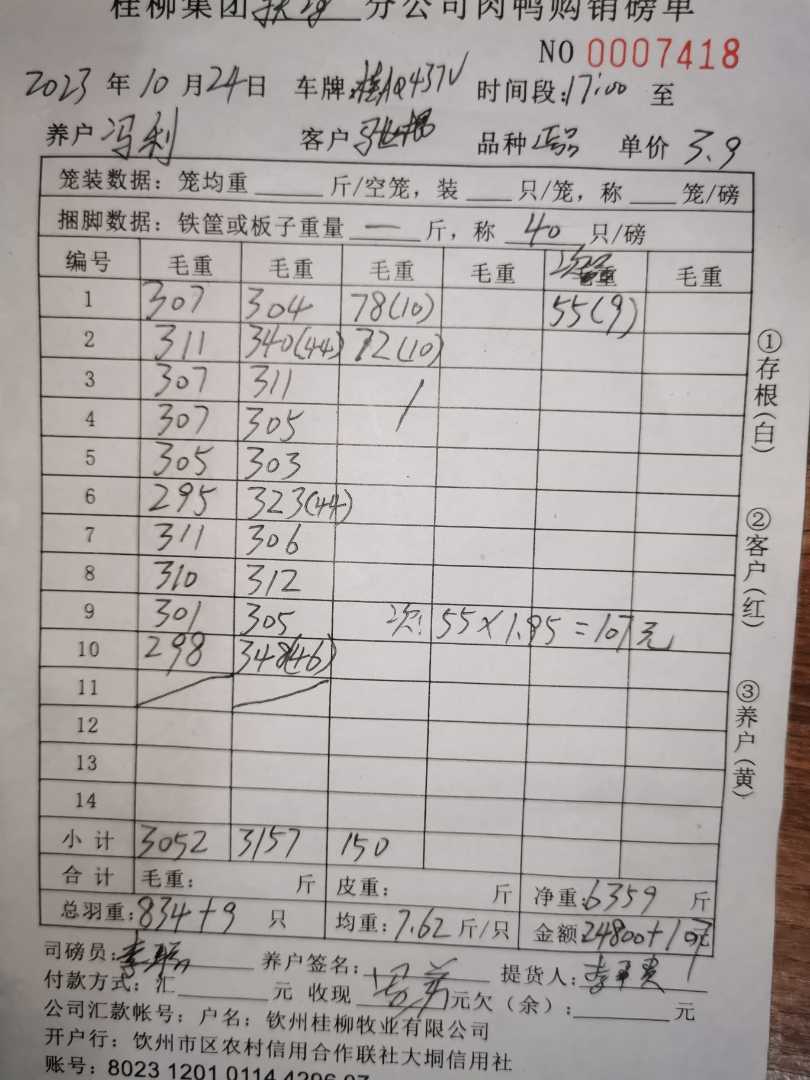 桂柳集团 分公司肉鸭购销磅单
NO 0007418
2023 年 10 月 24 日 车牌: 桂AQ437V 时间段: 17:00 至
养户 冯利 客户 品种 正品 单价 3.9
笼装数据: 笼均重 斤/空笼, 装 只/笼, 称 笼/磅
捆脚数据: 铁筐或板子重量 一 斤, 称 40 只/磅
编号 毛重 毛重 毛重 毛重 次品 毛重
1 307 304 78(10) 55(9)
2 311 340(44) 72(10)
3 307 311
4 307 305
5 305 303
6 295 323(44)
7 311 306
8 310 312
9 301 305 次: 55×1.95=107元
10 298 348(46)
11
12
13
14
小计 3052 3157 150
合计 毛重: 斤 皮重: 斤 净重: 6359 斤
总羽重: 834+9 只 均重: 7.62 斤/只 金额: 24800+107
司磅员: 养户签名: 提货人:
付款方式: 汇 元 收现 元欠(余): 元
公司汇款帐号: 户名: 钦州桂柳牧业有限公司
开户行: 钦州市区农村信用合作联社大垌信用社
账号: 8023 1201 0114 4296 07
①存根(白)
②客户(红)
③养户(黄)